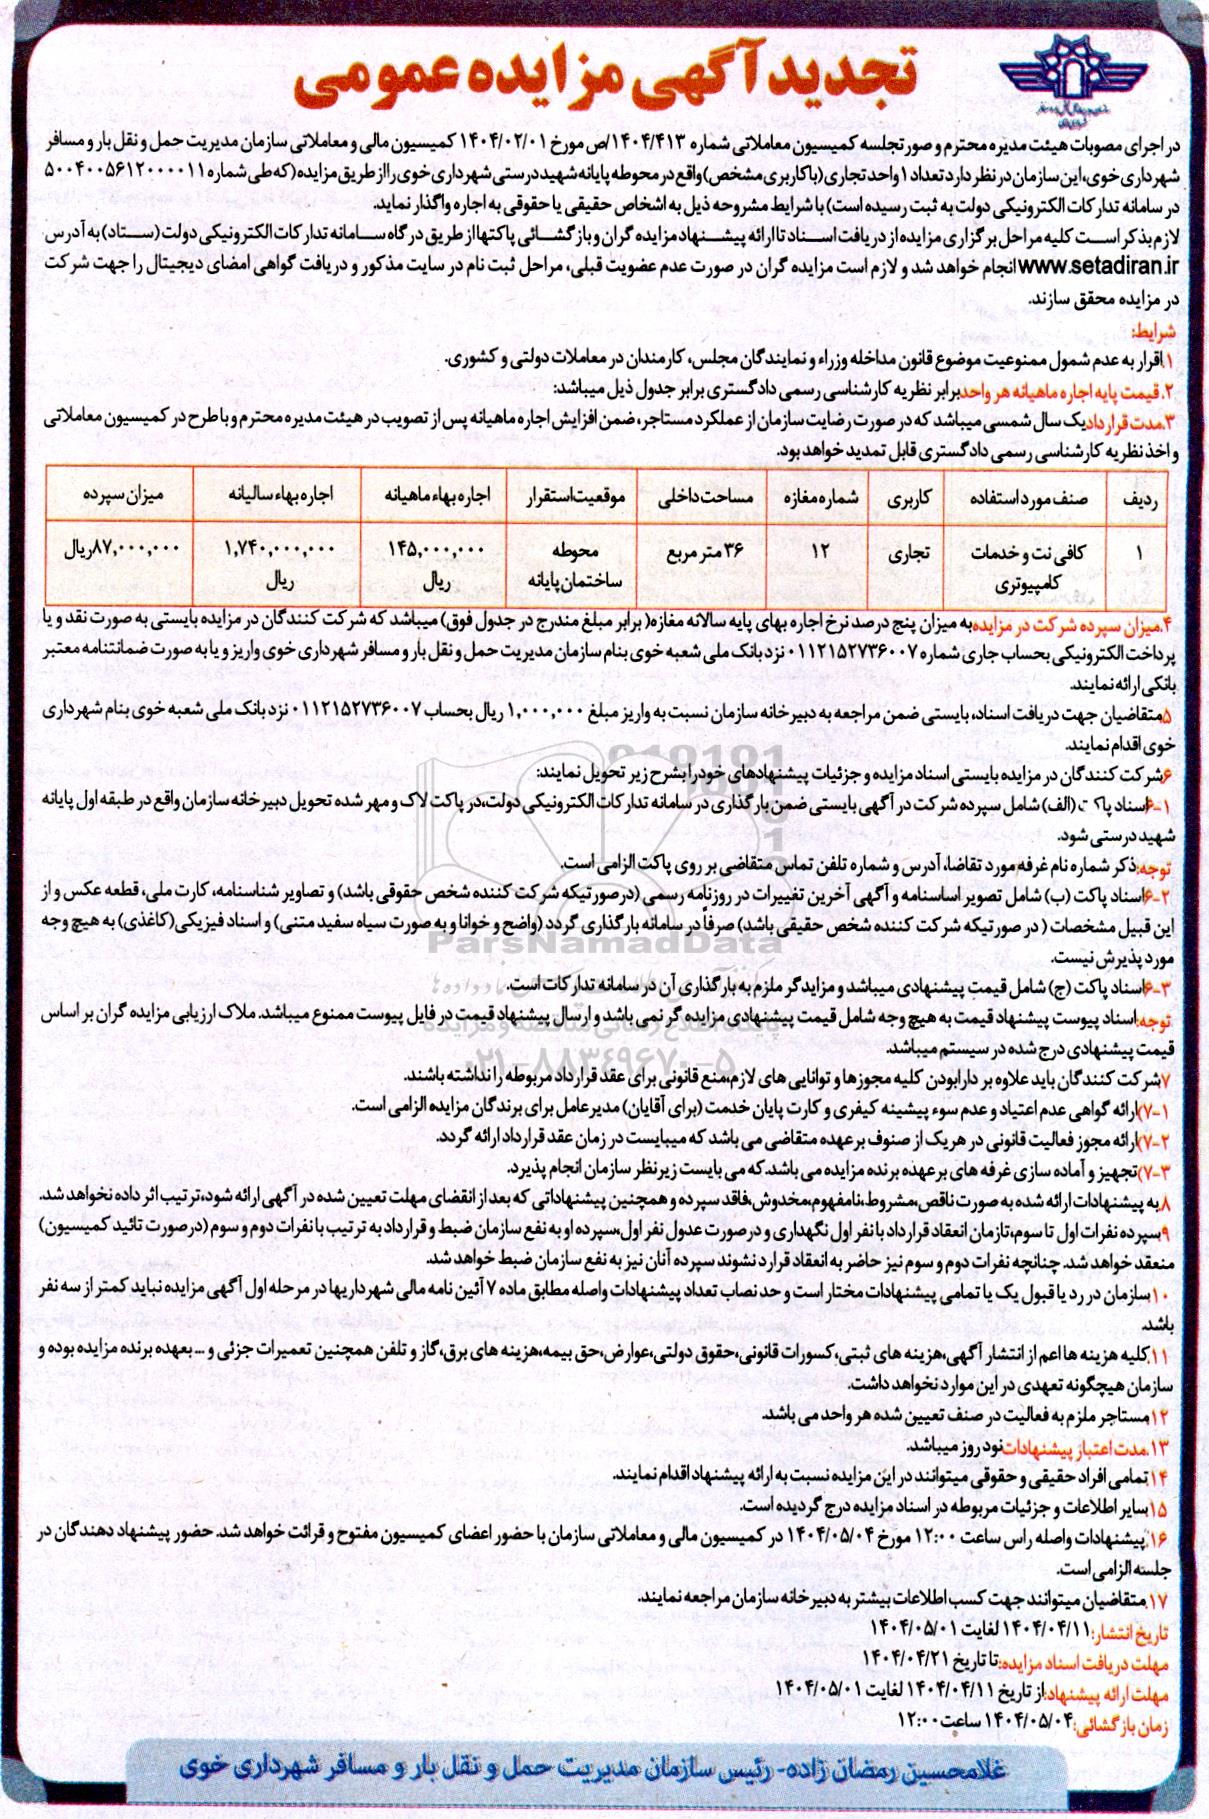 تجدید آگهی مزایده عمومی
در اجرای مصوبات هیئت مدیره محترم و صورتجلسه کمیسیون معاملاتی شماره ۱۴۰۴/۴۱۳/ص مورخ ۱۴۰۴/۰۲/۰۱ کمیسیون مالی و معاملاتی سازمان مدیریت حمل و نقل بار و مسافر
شهرداری خوی، این سازمان در نظر دارد تعداد ۱ واحد تجاری (با کاربری مشخص) واقع در محوطه پایانه شهید درستی شهرداری خوی را از طریق مزایده (که طی شماره ۵۰۰۴۰۰۵۶۱۲۰۰۰۰۱۱
در سامانه تدارکات الکترونیکی دولت به ثبت رسیده است) با شرایط مشروحه ذیل به اشخاص حقیقی یا حقوقی به اجاره واگذار نماید.
لازم بذکر است کلیه مراحل برگزاری مزایده از دریافت اسناد تا ارائه پیشنهاد مزایده گران و بازگشائی پاکتها از طریق درگاه سامانه تدارکات الکترونیکی دولت (ستاد) به آدرس
www.setadiran.ir انجام خواهد شد و لازم است مزایده گران در صورت عدم عضویت قبلی، مراحل ثبت نام در سایت مذکور و دریافت گواهی امضای دیجیتال را جهت شرکت
در مزایده محقق سازند.
شرایط:
۱.اقرار به عدم شمول ممنوعیت موضوع قانون مداخله وزراء و نمایندگان مجلس، کارمندان در معاملات دولتی و کشوری.
۲. قیمت پایه اجاره ماهیانه هر واحد برابر نظریه کارشناسی رسمی دادگستری برابر جدول ذیل میباشد:
۳.مدت قرارداد یک سال شمسی میباشد که در صورت رضایت سازمان از عملکرد مستاجر، ضمن افزایش اجاره ماهیانه پس از تصویب در هیئت مدیره محترم و با طرح در کمیسیون معاملاتی
و اخذ نظریه کارشناسی رسمی دادگستری قابل تمدید خواهد بود.
ردیف صنف مورد استفاده کاربری شماره مغازه مساحت داخلی موقعیت استقرار اجاره بهاء ماهیانه اجاره بهاء سالیانه میزان سپرده
۱ کافی نت و خدمات تجاری ۱۲ ۳۶ متر مربع محوطه ۱۴۵,۰۰۰,۰۰۰ ۱,۷۴۰,۰۰۰,۰۰۰ ۸۷,۰۰۰,۰۰۰ریال
کامپیوتری ساختمان پایانه ریال ریال
۴.میزان سپرده شرکت در مزایده به میزان پنج درصد نرخ اجاره بهای پایه سالانه مغازه( برابر مبلغ مندرج در جدول فوق) میباشد که شرکت کنندگان در مزایده بایستی به صورت نقد و یا
پرداخت الکترونیکی بحساب جاری شماره ۰۱۱۲۱۵۲۷۳۶۰۰۷ نزد بانک ملی شعبه خوی بنام سازمان مدیریت حمل و نقل بار و مسافر شهرداری خوی واریز و یا به صورت ضمانتنامه معتبر
بانکی ارائه نمایند.
۵.متقاضیان جهت دریافت اسناد، بایستی ضمن مراجعه به دبیرخانه سازمان نسبت به واریز مبلغ ۱,۰۰۰,۰۰۰ ریال بحساب ۰۱۱۲۱۵۲۷۳۶۰۰۷ نزد بانک ملی شعبه خوی بنام شهرداری
خوی اقدام نمایند.
۶.شرکت کنندگان در مزایده بایستی اسناد مزایده و جزئیات پیشنهادهای خود را بشرح زیر تحویل نمایند:
۶-۱)اسناد پاکت (الف) شامل سپرده شرکت در آگهی بایستی ضمن بارگذاری در سامانه تدارکات الکترونیکی دولت،در پاکت لاک و مهر شده تحویل دبیرخانه سازمان واقع در طبقه اول پایانه
شهید درستی شود.
توجه:ذکر شماره نام غرفه مورد تقاضا، آدرس و شماره تلفن تماس متقاضی بر روی پاکت الزامی است.
۶-۲)اسناد پاکت (ب) شامل تصویر اساسنامه و آگهی آخرین تغییرات در روزنامه رسمی (درصورتیکه شرکت کننده شخص حقوقی باشد) و تصاویر شناسنامه، کارت ملی، قطعه عکس و از
این قبیل مشخصات ( در صورتیکه شرکت کننده شخص حقیقی باشد) صرفاً در سامانه بارگذاری گردد (واضح و خوانا و به صورت سیاه سفید متنی) و اسناد فیزیکی(کاغذی) به هیچ وجه
مورد پذیرش نیست.
۶-۳)اسناد پاکت (ج) شامل قیمت پیشنهادی میباشد و مزایدگر ملزم به بارگذاری آن در سامانه تدارکات است.
توجه:اسناد پیوست پیشنهاد قیمت به هیچ وجه شامل قیمت پیشنهادی مزایده گر نمی باشد و ارسال پیشنهاد قیمت در فایل پیوست ممنوع میباشد. ملاک ارزیابی مزایده گران بر اساس
قیمت پیشنهادی درج شده در سیستم میباشد.
۷.شرکت کنندگان باید علاوه بر دارا بودن کلیه مجوزها و توانایی های لازم،منع قانونی برای عقد قرارداد مربوطه را نداشته باشند.
۷-۱)ارائه گواهی عدم اعتیاد و عدم سوء پیشینه کیفری و کارت پایان خدمت (برای آقایان) مدیرعامل برای برندگان مزایده الزامی است.
۷-۲)ارائه مجوز فعالیت قانونی در هریک از صنوف بر عهده متقاضی می باشد که میبایست در زمان عقد قرارداد ارائه گردد.
۷-۳)تجهیز و آماده سازی غرفه های بر عهده برنده مزایده می باشد.که می بایست زیر نظر سازمان انجام پذیرد.
۸.به پیشنهادات ارائه شده به صورت ناقص،مشروط،نامفهوم،مخدوش،فاقد سپرده و همچنین پیشنهاداتی که بعد از انقضای مهلت تعیین شده در آگهی ارائه شود،ترتیب اثر داده نخواهد شد.
۹.سپرده نفرات اول تا سوم،تا زمان انعقاد قرارداد با نفر اول نگهداری و در صورت عدول نفر اول،سپرده او به نفع سازمان ضبط و قرارداد به ترتیب با نفرات دوم و سوم (درصورت تائید کمیسیون)
منعقد خواهد شد. چنانچه نفرات دوم و سوم نیز حاضر به انعقاد قرارد نشوند سپرده آنان نیز به نفع سازمان ضبط خواهد شد.
۱۰.سازمان در رد یا قبول یک یا تمامی پیشنهادات مختار است و حد نصاب تعداد پیشنهادات واصله مطابق ماده ۷ آئین نامه مالی شهرداریها در مرحله اول آگهی مزایده نباید کمتر از سه نفر
باشد.
۱۱.کلیه هزینه ها اعم از انتشار آگهی،هزینه های ثبتی،کسورات قانونی،حقوق دولتی،عوارض،حق بیمه،هزینه های برق،گاز و تلفن همچنین تعمیرات جزئی و ... بعهده برنده مزایده بوده و
سازمان هیچگونه تعهدی در این موارد نخواهد داشت.
۱۲.مستاجر ملزم به فعالیت در صنف تعیین شده هر واحد می باشد.
۱۳.مدت اعتبار پیشنهادات نود روز میباشد.
۱۴.تمامی افراد حقیقی و حقوقی میتوانند در این مزایده نسبت به ارائه پیشنهاد اقدام نمایند.
۱۵.سایر اطلاعات و جزئیات مربوطه در اسناد مزایده درج گردیده است.
۱۶.پیشنهادات واصله راس ساعت ۱۲:۰۰ مورخ ۱۴۰۴/۰۵/۰۴ در کمیسیون مالی و معاملاتی سازمان با حضور اعضای کمیسیون مفتوح و قرائت خواهد شد. حضور پیشنهاد دهندگان در
جلسه الزامی است.
۱۷.متقاضیان میتوانند جهت کسب اطلاعات بیشتر به دبیرخانه سازمان مراجعه نمایند.
تاریخ انتشار:۱۴۰۴/۰۴/۱۱ لغایت ۱۴۰۴/۰۵/۰۱
مهلت دریافت اسناد مزایده:تا تاریخ ۱۴۰۴/۰۴/۲۱
مهلت ارائه پیشنهاد:از تاریخ ۱۴۰۴/۰۴/۱۱ لغایت ۱۴۰۴/۰۵/۰۱
زمان بازگشائی:۱۴۰۴/۰۵/۰۴ ساعت ۱۲:۰۰
غلامحسین رمضان زاده- رئیس سازمان مدیریت حمل و نقل بار و مسافر شهرداری خوی
ParsNamadData
۰۲۱-۸۸۳۴۹۶۷۰-۵